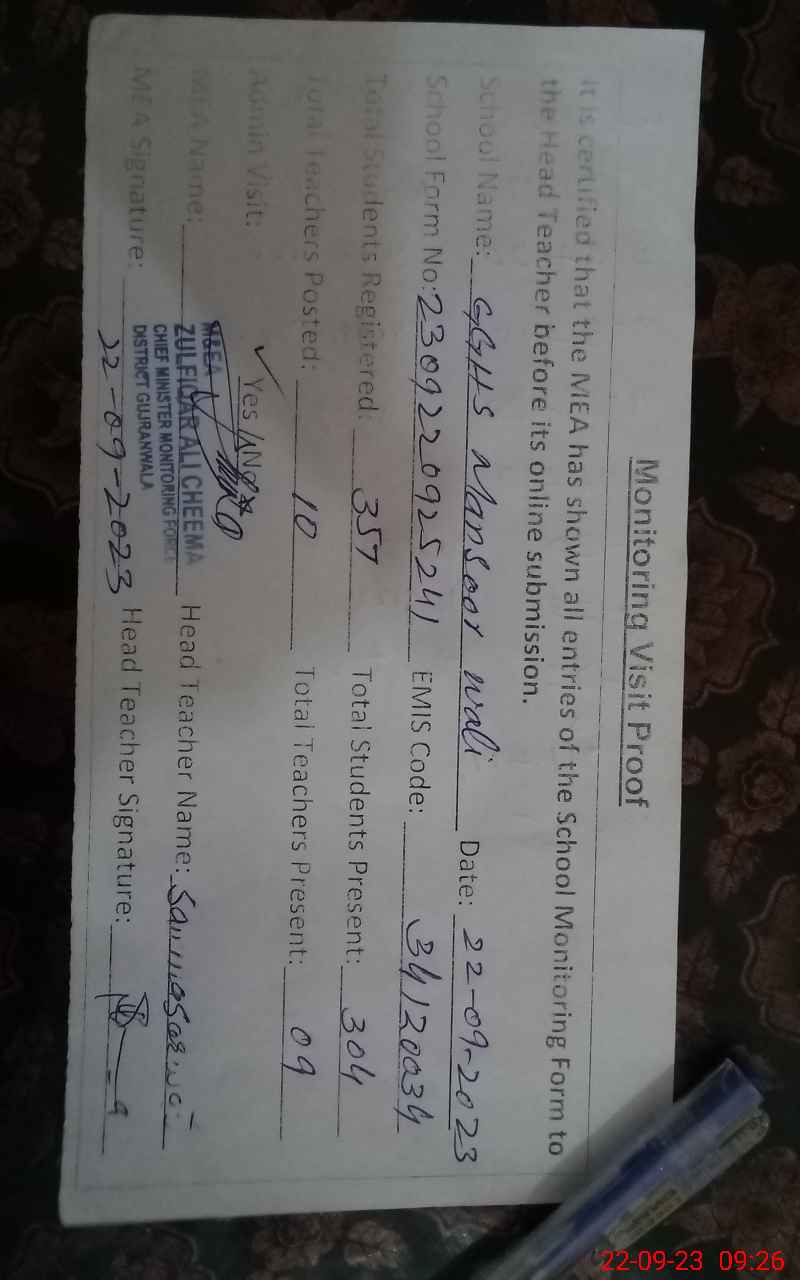 Monitoring Visit Proof
It is certified that the MEA has shown all entries of the School Monitoring Form to
the Head Teacher before its online submission.
School Name: GGHS Mansoor wali Date: 22-09-2023
School Form No: 2309220925241 EMIS Code: 34120034
Total Students Registered: 357 Total Students Present: 304
Total Teachers Posted: 10 Total Teachers Present: 09
Admin Visit: ✓ Yes / No
MEA Name: Head Teacher Name:
M&EA
ZULFIQAR ALI CHEEMA
CHIEF MINISTER MONITORING FORCE
DISTRICT GUJRANWALA
MEA Signature: 22-09-2023 Head Teacher Signature:
22-09-23 09:26